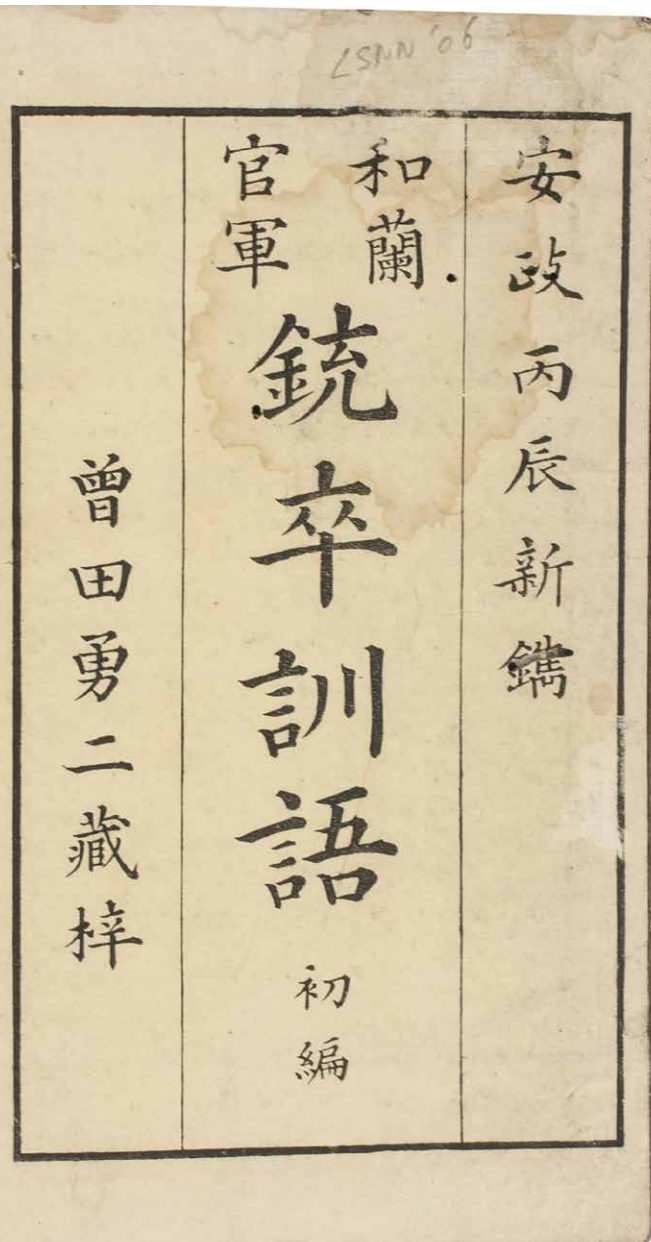 LSNN '06
安政丙辰新鐫
和蘭
官軍
銃卒訓語 初編
曽田勇二藏梓